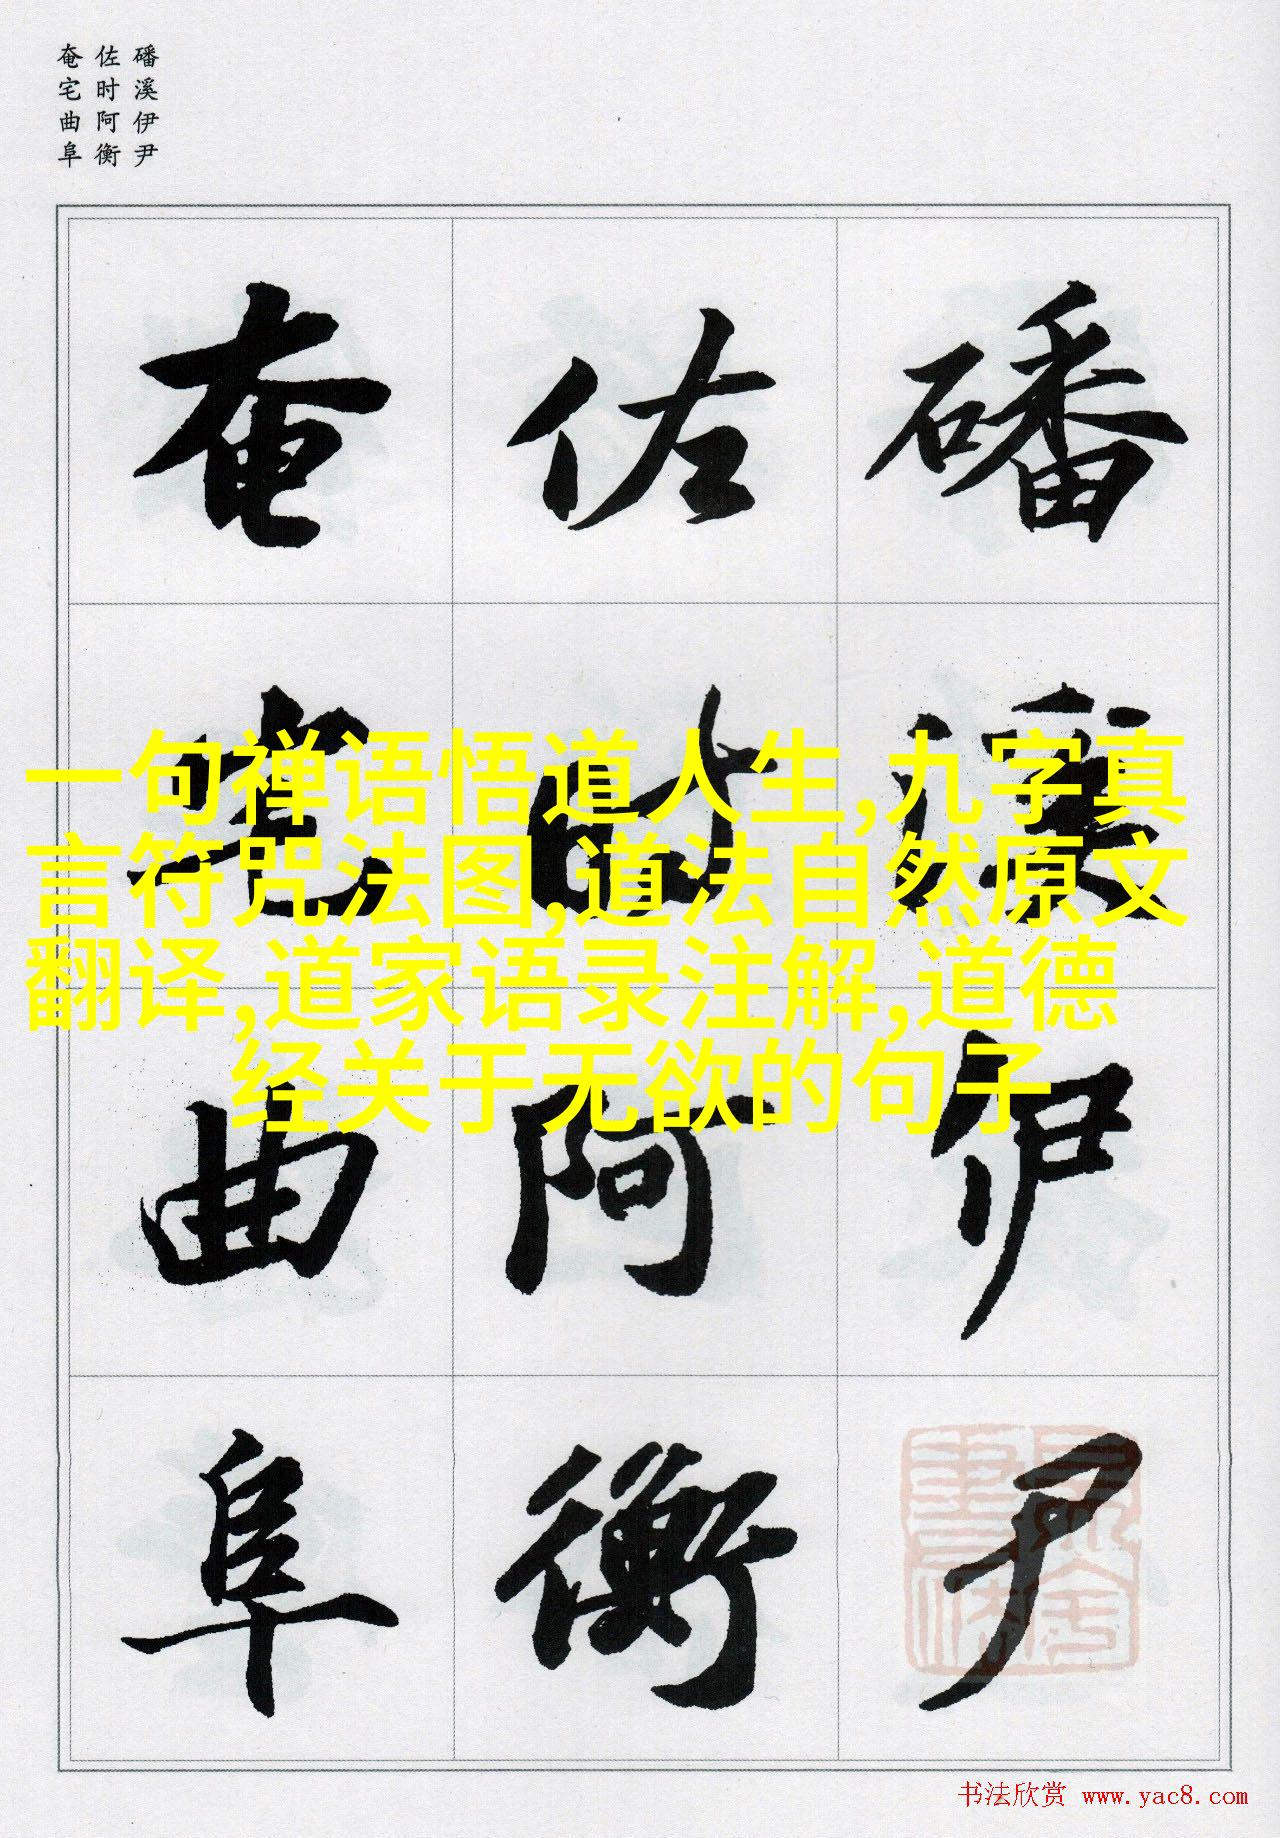 磻溪伊尹
佐时阿衡
奄宅曲阜
磻溪伊尹
佐时阿衡
奄宅曲阜
一句禅语悟道人生,九字真
言符咒法图,道法自然原文
翻译,道家语录注解,道德
经关于无欲的句子
书法欣赏 www.yac8.com